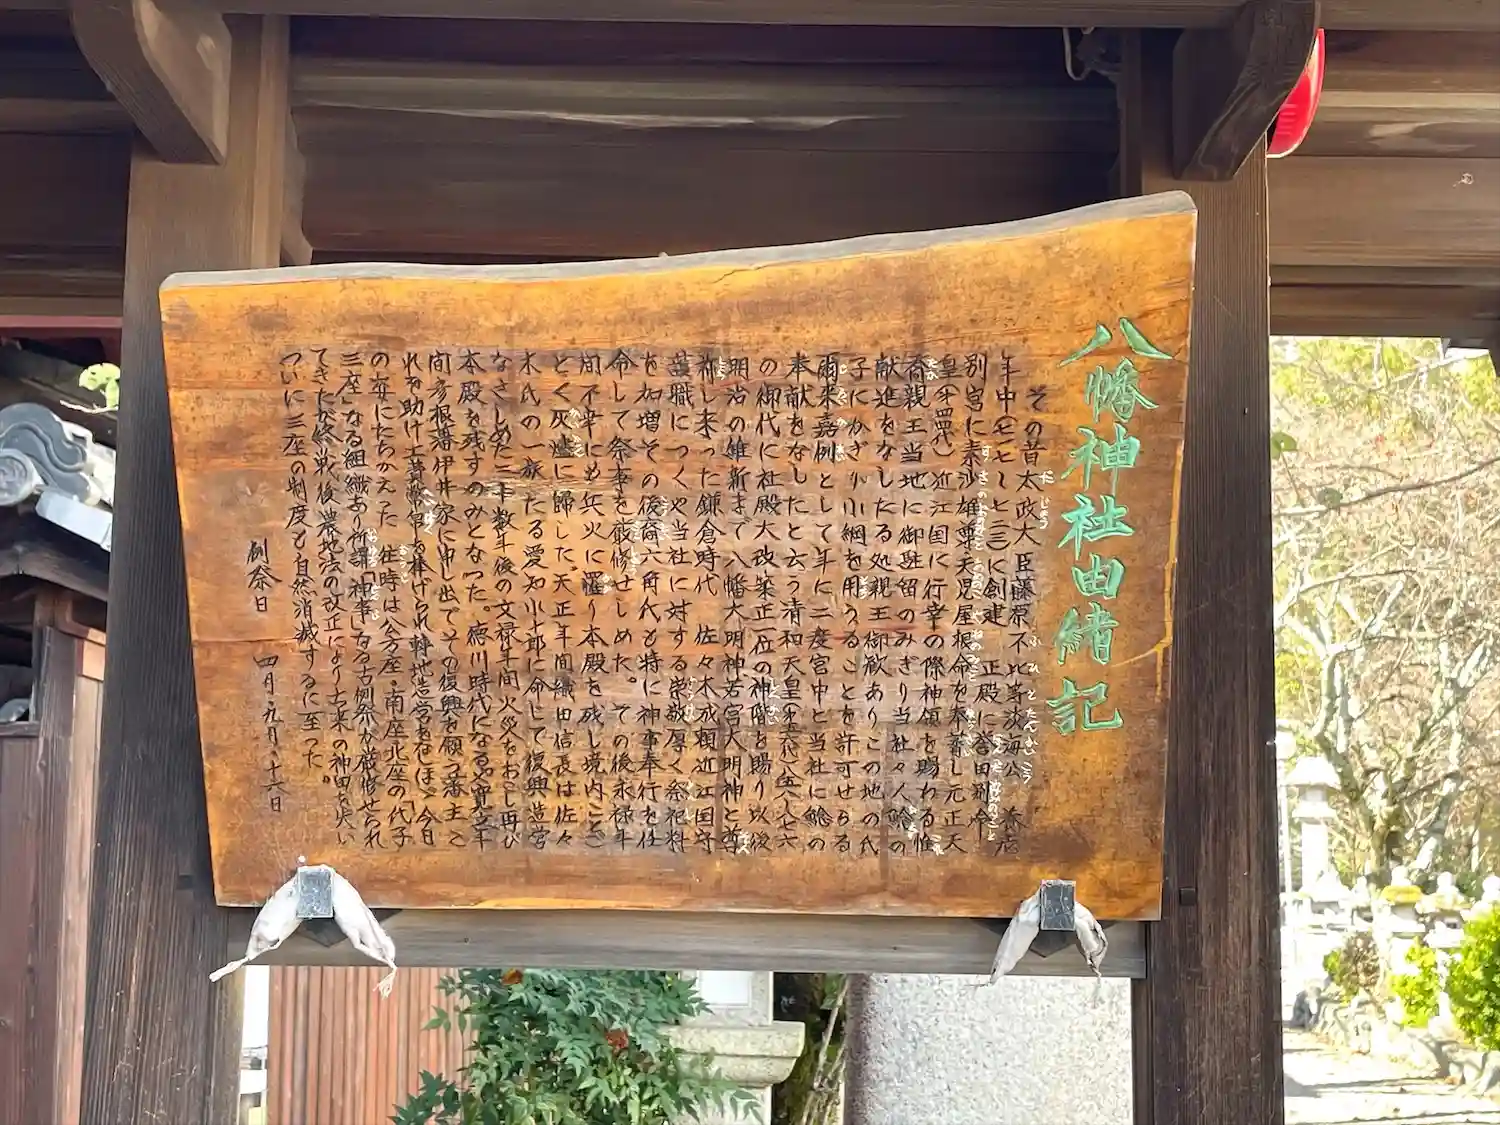 八幡神社由緒記
その昔太政大臣藤原不比等淡海公 養老
年中(七一七~七二三)に創建 正殿に誉田別命
別宮に素沙雄尊天児屋根命を奉蓄し元正天
皇(第四四代)近江国に行幸の際神領を賜わる惟
喬親王当地に御駐留のみぎり当社々人鯰の
献進をなしたる処親王御歓ありこの地の氏
子にかぎり小網を用うることを許可せらる
爾来嘉例として年に二度宮中と当社に鯰の
奉献をなしたと云う清和天皇(第五六代)(八五八~八七六)
の御代に社殿大改築正一位の神階を賜り以後
明治の維新まで八幡大明神若宮大明神と尊
称し来った鎌倉時代 佐々木成頼近江国守
護職につくや当社に対する崇敬厚く祭祀料
を加増その後裔六角氏も特に神事奉行を任
命して祭事を厳修せしめた。その後永禄年
間不幸にも兵火に罹り本殿を残し境内ことご
とく灰燼に帰した。天正年間織田信長は佐々
木氏の一族たる愛知小十郎に命じて復興造営
なさしめた三十数年後の文禄年間火災をおこし再び
本殿を残すのみとなった。徳川時代になるや寛文年
間彦根藩伊井家に申し出でその復興を願つ藩主こ
れを助け土葬幣帛を奉げられ 転地造営をなしほゞ今日
の姿にたちかえった 往時は公方座・南座北座の「代子
三座」なる組織あり所謂「神事」なる古例祭が厳修せられ
てきたが終戦後農地法の改正により古来の神田を失い
ついに三座の制度も自然消滅するに至った。
例祭日 四月・九月・十六日